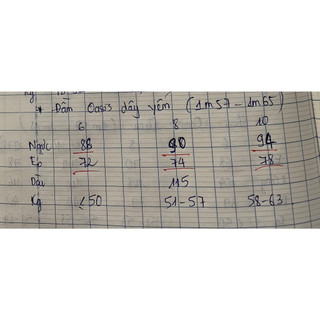 + Đầm Oasis dây yếm (1m57 - 1m65)
6 8 10
Ngực 86 90 94
Eo 72 74 78
Dài 115
Kg ≤50 51-57 58-63